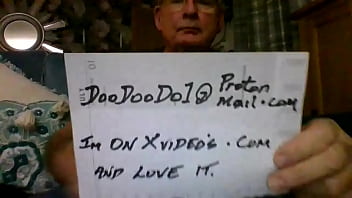 JULY 01
DooDooDo1@ Proton
mail.com
IM ON XVIDEO'S.COM
AND LOVE IT.